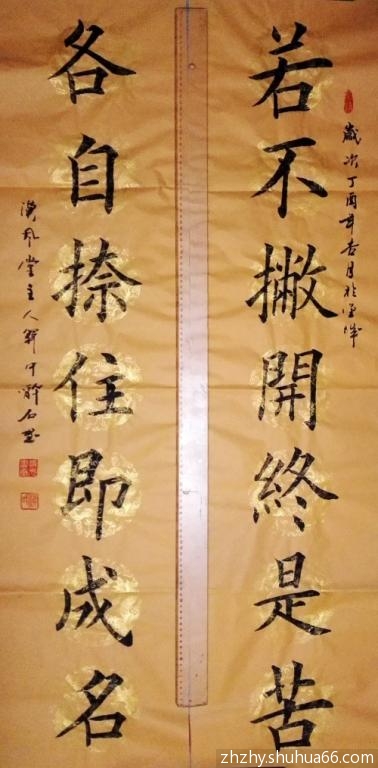 若不撇開終是苦
各自捺住即成名
歲次丁酉年
堂主人
zhzhy.shuhua66.com